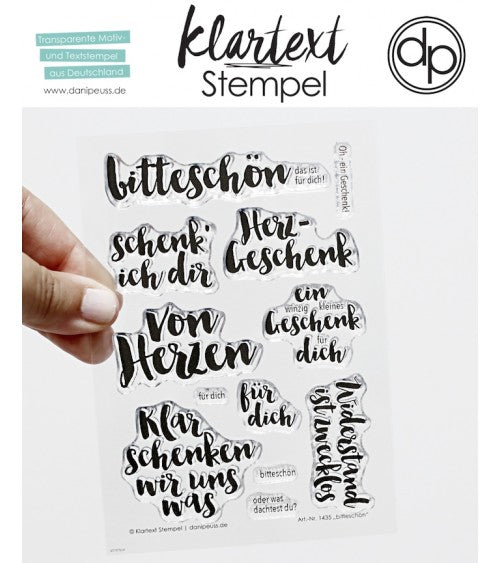 Transparente Motiv-
und Textstempel
aus Deutschland
www.danipeuss.de
klartext
Stempel
dp
bitteschön
das ist
für dich!
Oh - ein Geschenk!
schenk'
ich dir
Herz-
Geschenk
von
Herzen
ein
winzig kleines
Geschenk
für
dich
für dich
für
dich
Klar
schenken
wir uns
was
Widerstand
ist zwecklos
bitteschön
oder was
dachtest du?
Art.-Nr. 1435 „bitteschön"
© Klartext Stempel | danipeuss.de